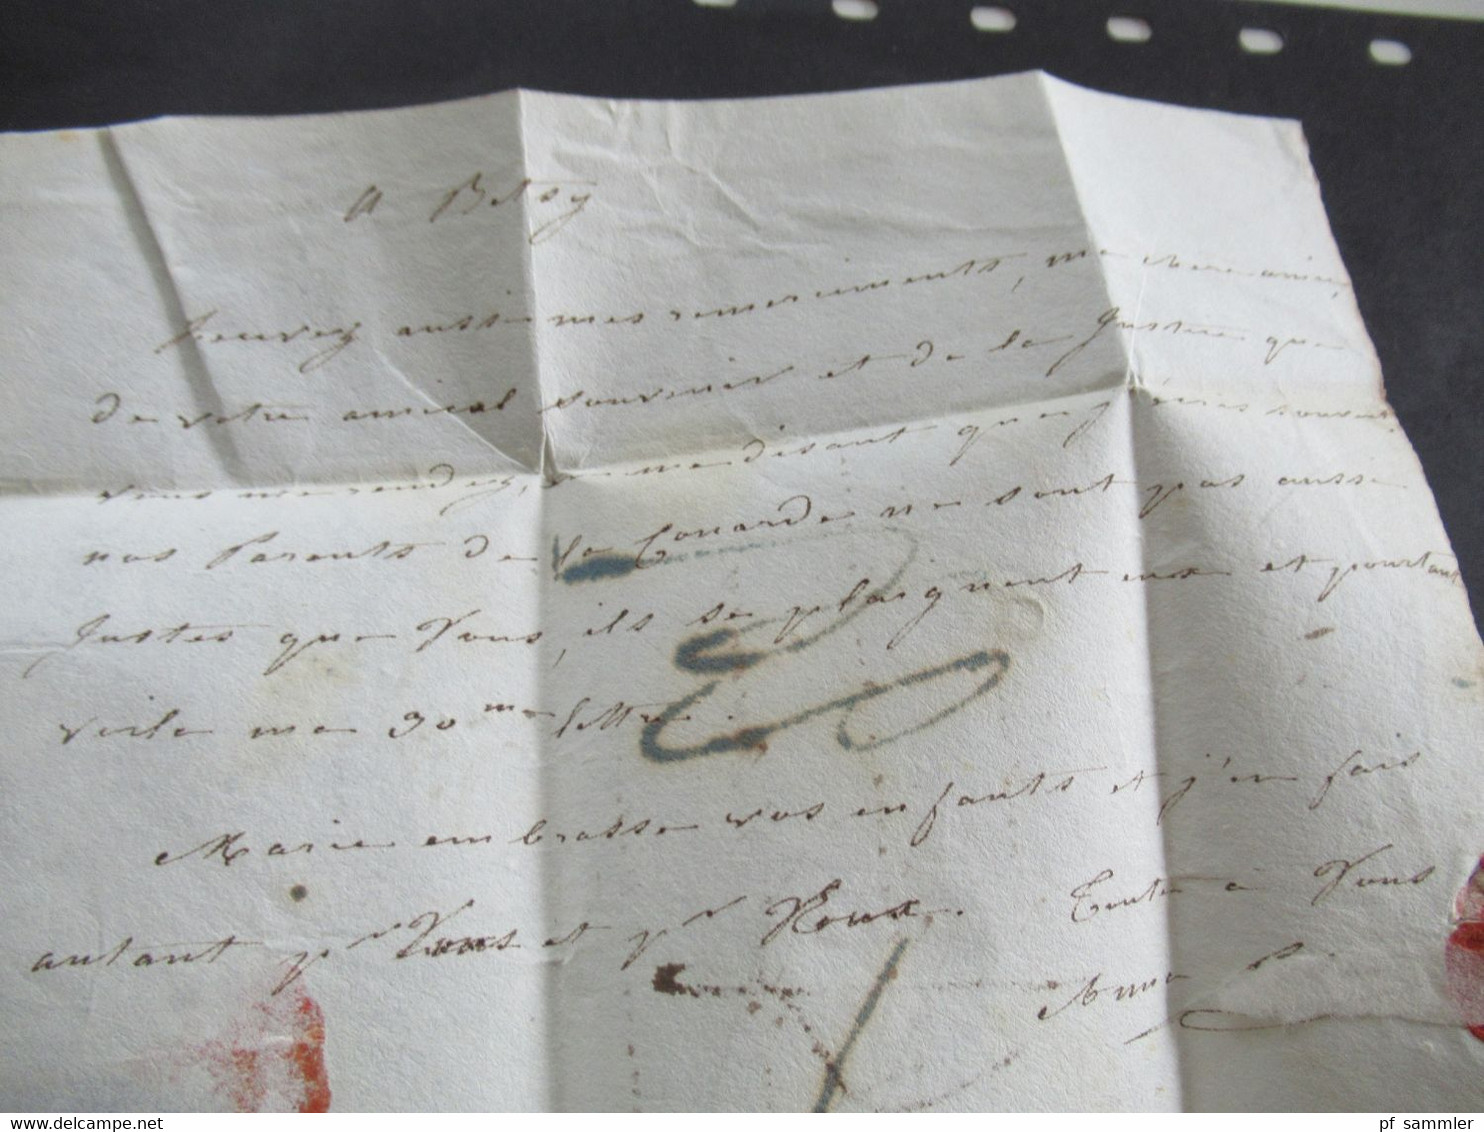 A Betsy
Recevez aussi mes remerciements, ma chere amie,
de votre amical souvenir et de la Justice que
vous me rendez, en me disant que j'écris souvent.
nos Parents de la Couarde ne sont pas aussi
Justes que Vous, ils se plaignent eux et pourtant
voila ma 30me lettre.
Marie embrasse vos enfants et j'en fais
autant pr Vous et pr Roux. Toute à Vous
Anna P.
pf_sammler